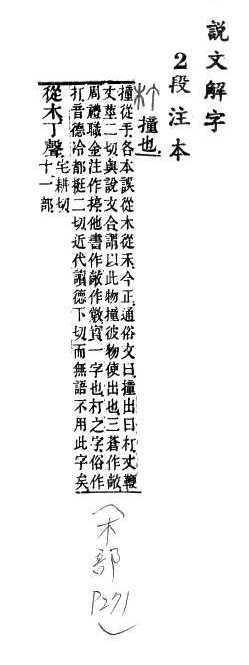 説文解字
2段注本
朾 撞也
撞從手各本誤從木從禾今正通俗文曰撞出曰朾丈鞭
丈莖二切與說文合謂以此物撞彼物使出也三蒼作敞
周禮職金注作揨他書作敞作敱實一字也朾之字俗作
打音德冷都挺二切近代讀德下切而無語不用此字矣
從木丁聲 宅耕切 十一部
(木部 P271)